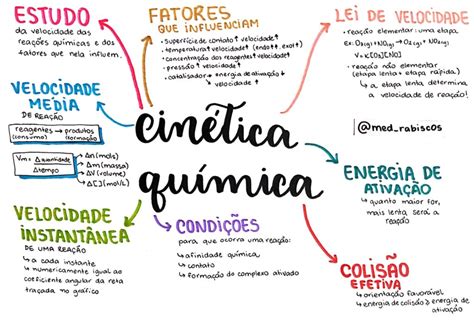 ESTUDO
da velocidade das
reações químicas e dos
fatores que nela influem.
FATORES
QUE INFLUENCIAM
• superfície de contato↑ velocidade↑
• temperatura↑ velocidade↑ (endo↑↑, exo↑)
• concentração dos reagentes↑ velocidade↑
• pressão↑ velocidade↑
• catalisador→ energia de ativação↓
velocidade↑
LEI DE VELOCIDADE
• reação elementar: uma etapa
ex: O3(g) + NO(g) → O2(g) + NO2(g)
V = K[O3][NO]
• reação não elementar
(etapa lenta + etapa rápida)
↳ a etapa lenta determina
a velocidade de reação!
VELOCIDADE
MÉDIA
DE REAÇÃO
reagentes → produtos
(consumo) (formação)
Vm = Δ quantidade
Δ tempo
Δn (mols)
Δm (massa)
ΔV (volume)
Δ[ ] (mol/L)
cinética
química
@med_rabiscos
ENERGIA DE
ATIVAÇÃO
↳ quanto maior for,
mais lenta será a
reação
VELOCIDADE
INSTANTÂNEA
DE UMA REAÇÃO
↳ a cada instante
↳ numericamente igual ao
coeficiente angular da reta
traçada no gráfico
CONDIÇÕES
para que ocorra uma reação:
↳ afinidade química
↳ contato
↳ formação do complexo ativado
COLISÃO
EFETIVA
↳ orientação favorável
↳ energia de colisão ≥ energia de
ativação